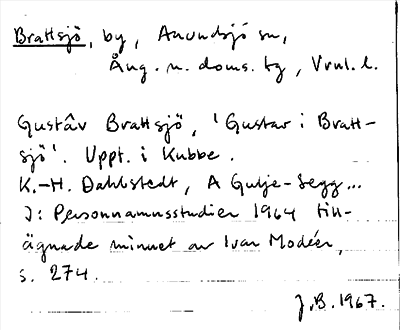 Brattsjö, by, Anundsjö sn,
Ång. n. doms. tg, Vrnl. l.
Gustâv Brattsjö, 'Gustav i Bratt-
sjö'. Uppt. i Kubbe.
K.-H. Dahlstedt, A Gulje-Segg...
I: Personnamnsstudier 1964 till-
ägnade minnet av Ivar Modéer,
s. 274.
J.B. 1967.